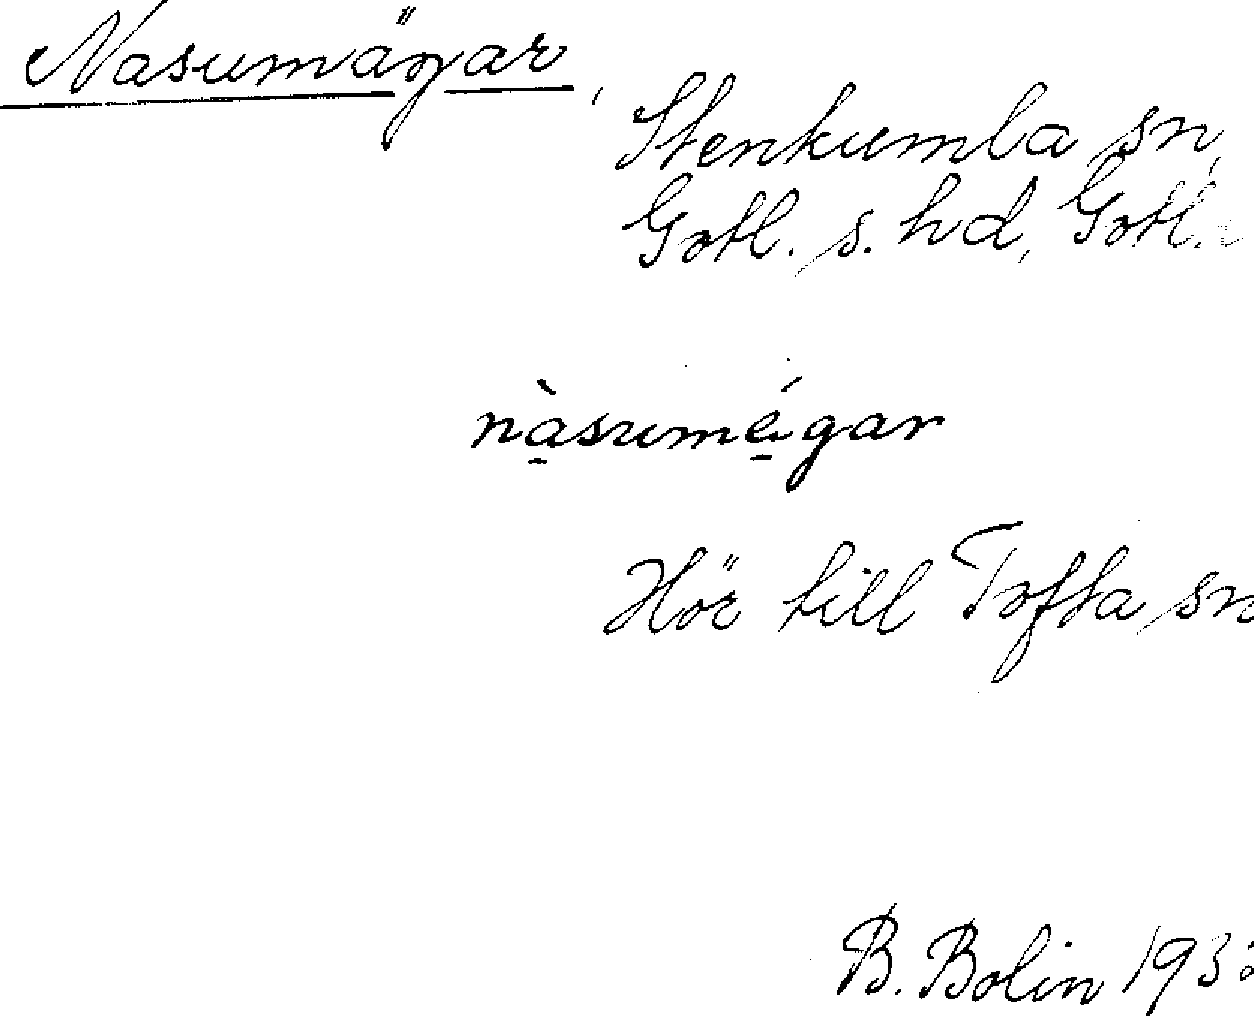 Nasumägar,
Stenkumla sn,
Gotl. s. hd, Gotl.
nàsumégar
Hör till Tofta sn
B. Bolin